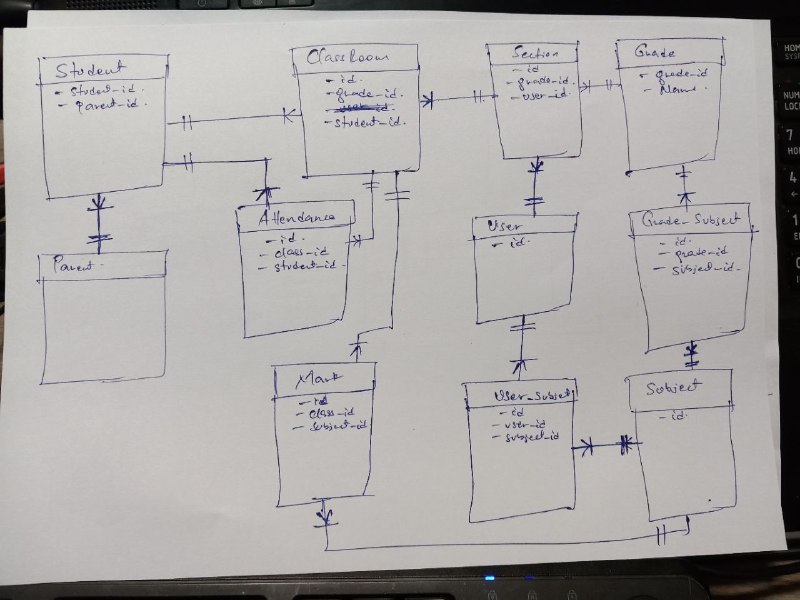 Student
- Student-id.
- Parent-id.
ClassRoom
- id.
- grade-id.
- user-id.
- student-id.
Section
- id
- grade-id.
- user-id.
Grade
- grade-id
- Name.
Parent.
Attendance
- id.
- class-id
- student-id.
User
- id.
Grade-Subject
- id.
- grade-id
- subject-id.
Mark
- id
- class-id
- subject-id
User-Subject
- id
- user-id
- subject-id
Subject
- id.
HOME
NUM
LOCK
7
4
1